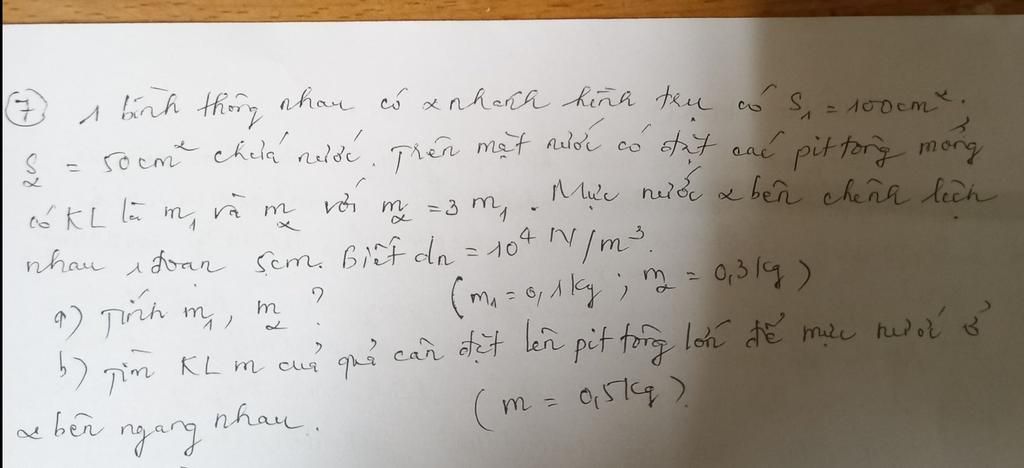 ⑦ 1 bình thông nhau có 2 nhánh hình trụ có S₁ = 100cm².
S₂ = 50cm² chứa nước. Trên mặt nước có đặt các pittông mỏng
có KL là m₁ và m₂ với m₂ = 3 m₁. Mực nước 2 bên chênh lệch
nhau 1 đoạn 5cm. Biết dn = 10⁴ N/m³.
a) Tính m₁, m₂? (m₁ = 0,1kg; m₂ = 0,3kg)
b) Tìm KL m của quả cân đặt lên pittông lớn để mực nước ở
2 bên ngang nhau. (m = 0,5kg).